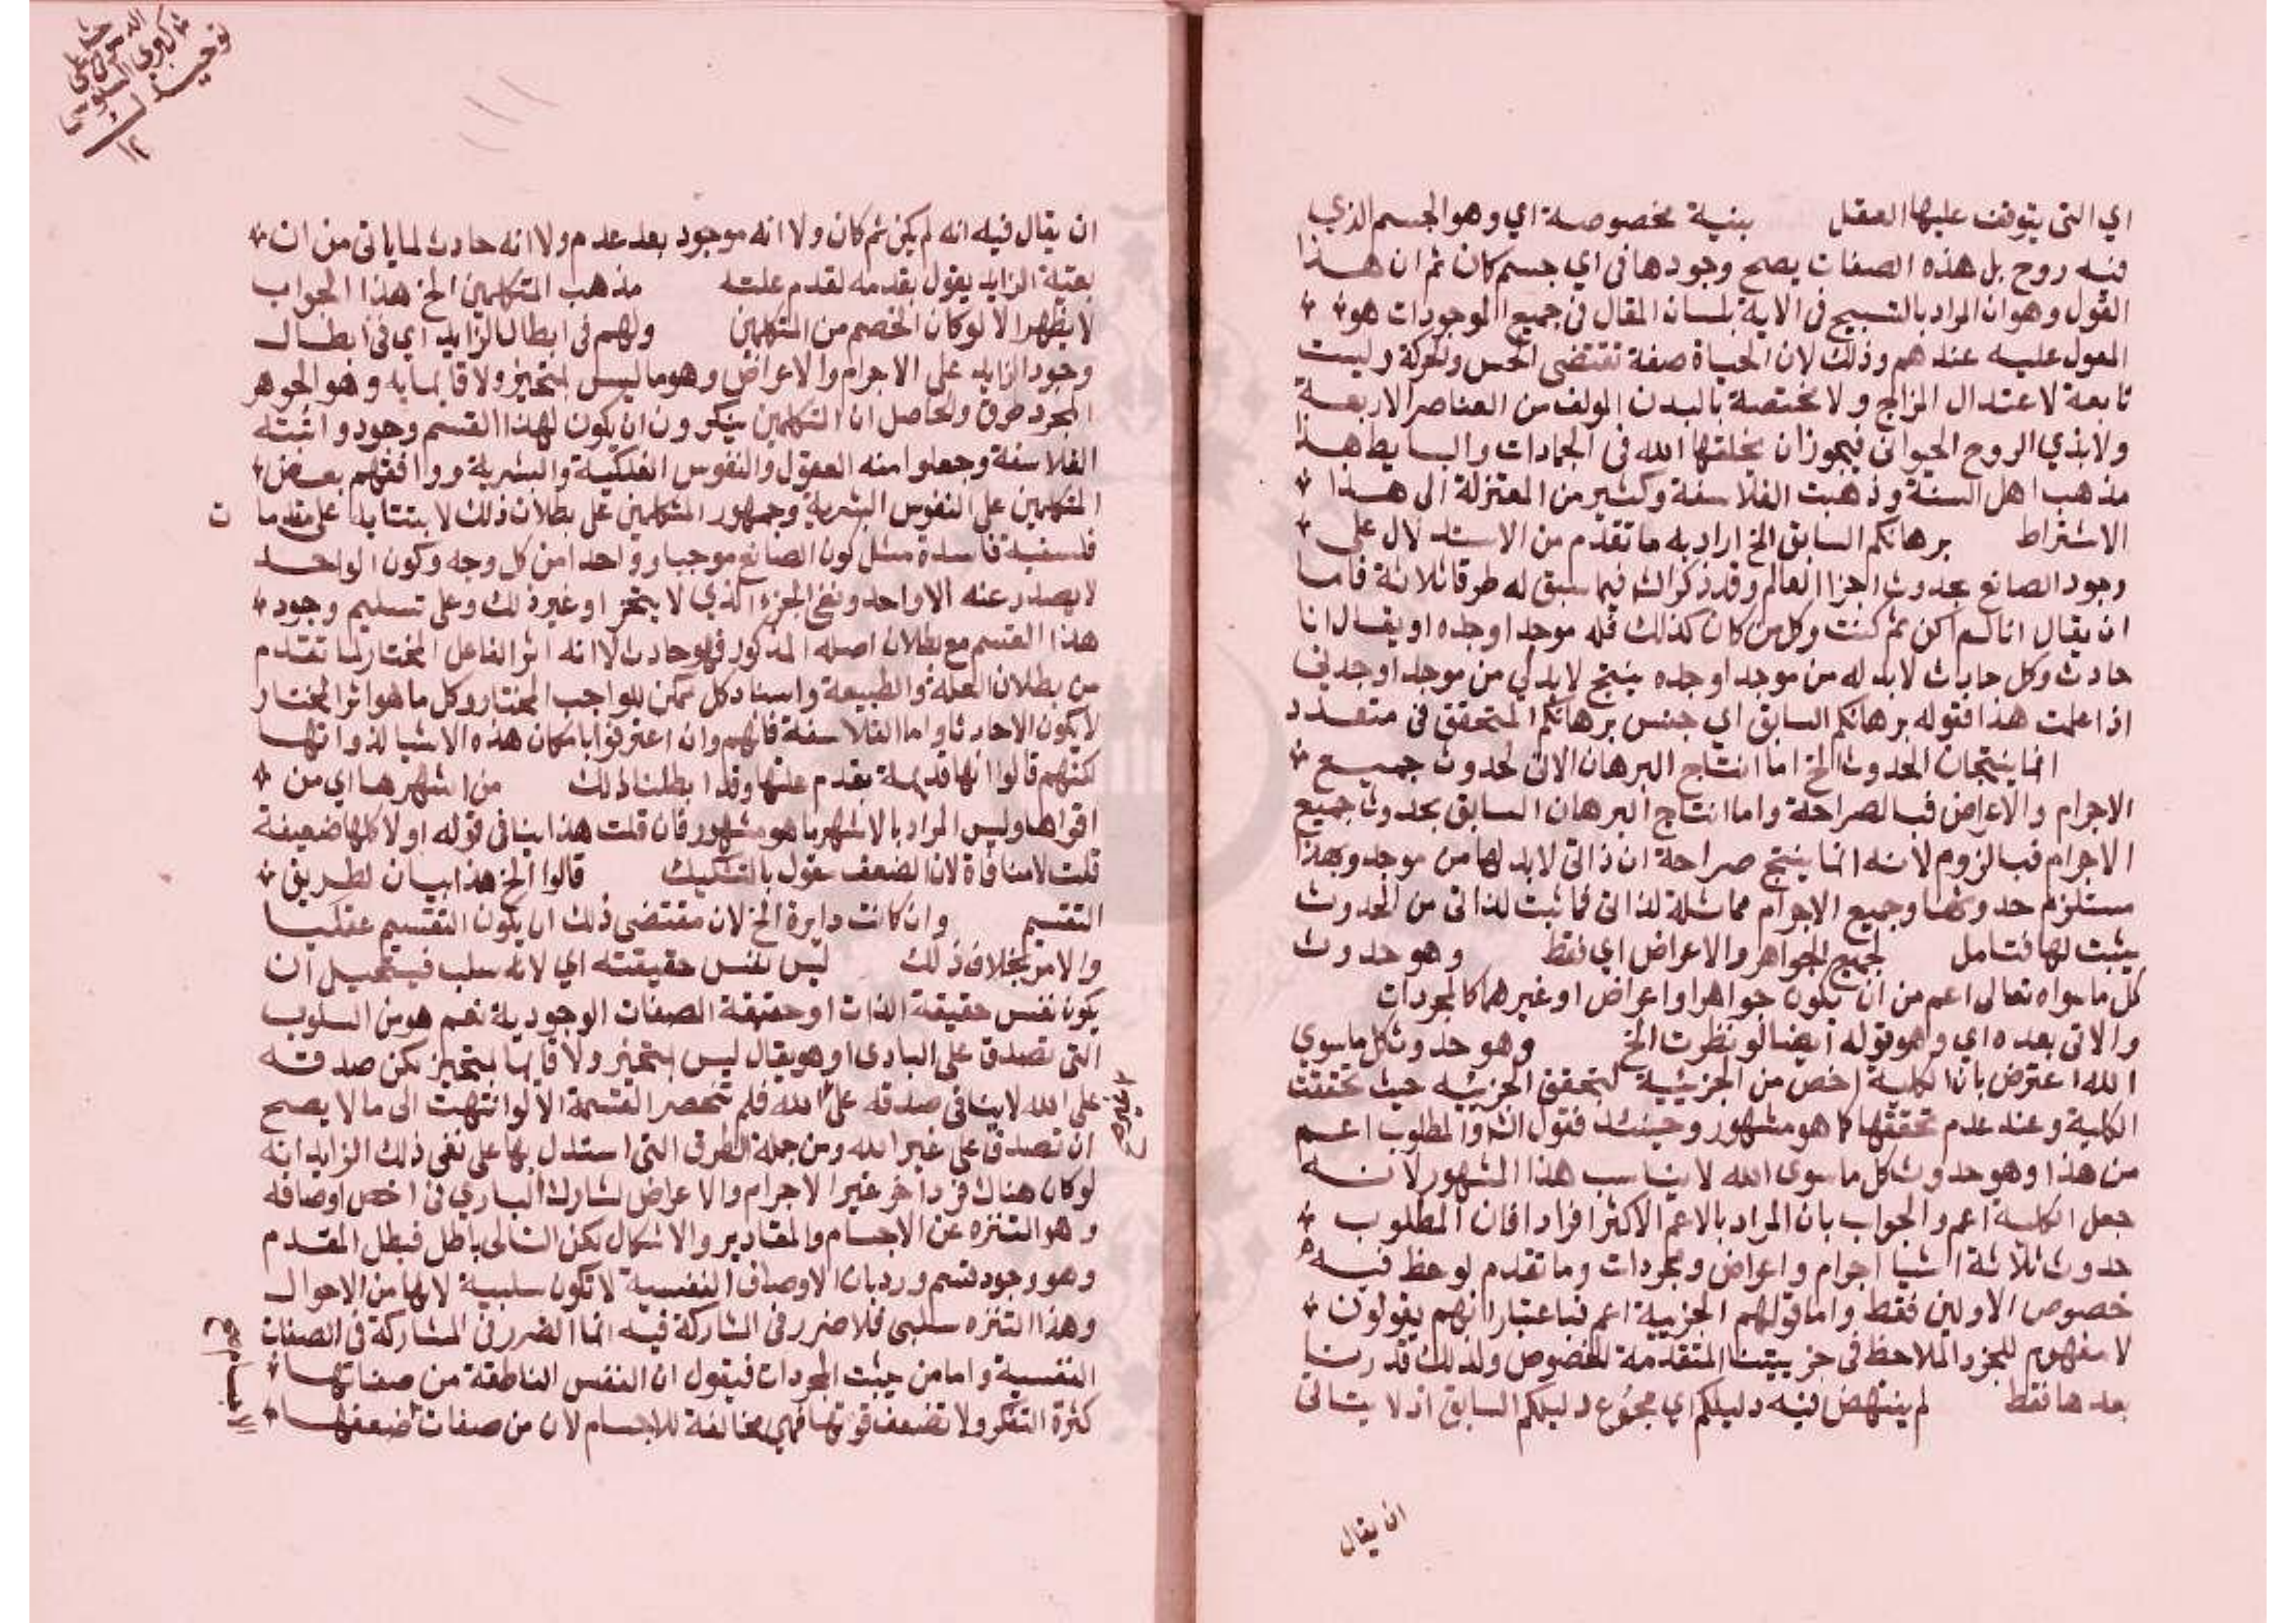 اي التي يتوقف عليها العقل بنية مخصوصة اي وهو الجسم الذي
فيه روح بل هذه الصفات يصح وجودها في اي جسم كان ثم ان هذا
القول وهو ان المراد بالتسبيح في الاية بلسان المقال في جميع الموجودات هو
المعول عليه عندهم وذلك لان الحياة صفة تقتضي الحس والحركة وليست
تابعة لاعتدال المزاج ولا مختصة بالبدن المولف من العناصر الاربعة
ولا بذي الروح الحيواني فيجوز ان يخلقها الله في الجمادات والبسايط هذا
مذهب اهل السنة وذهبت الفلاسفة وكثير من المعتزلة الى هذا
الاشتراط برهانكم السابق الخ اراد به ما تقدم من الاستدلال على
وجود الصانع بحدوث اجزا العالم وقد ذكر الش فيما سبق له طرقا ثلاثة فاما
ان يقال انا لم اكن ثم كنت وكل من كان كذلك فله موجد اوجده او يقال انا
حادث وكل حادث لابد له من موجد اوجده ينتج لابد لي من موجد اوجدني
اذا علمت هذا فقوله برهانكم السابق اي جنس برهانكم المتحقق في متعدد
انما ينتجان الحدوث الخ اما انتاج البرهان الاتي لحدوث جميع
الاجرام والاعراض فبالصراحة واما انتاج البرهان السابق بحدوث جميع
الاجرام فبالزوم لانه انما ينتج صراحة ان ذاتي لابد لها من موجد وهذا
مستلزم حدوثها وجميع الاجرام مماثلة لذاتي فما ثبت لذاتي من الحدوث
يثبت لها فتامل لجميع الجواهر والاعراض اي فقط وهو حدوث
كل ما سواه تعالى اعم من ان يكون جواهرا واعراض او غيرهما كالمجردات
والاتي بعده اي وهو قوله ايضا لو نظرت الخ وهو حدوث كل ما سوى
الله اعترض بان الكلية اخص من الجزئية لتحقق الجزئيه حيث تحققت
الكلية وعند عدم تحققها كما هو مشهور وحينئذ فقول الش والمطلوب اعم
من هذا وهو حدوث كل ما سوى الله لا يناسب هذا المشهور لانه
جعل الكلية اعم والجواب بان المراد بالاعم الاكثر افرادا فان المطلوب
حدوث ثلاثة اشيا اجرام واعراض ومجردات وما تقدم لوحظ فيه
خصوص الاولين فقط واما قولهم الجزيية اعم فباعتبار انهم يقولون
لا مفهوم للجزء الملاحظ في جزييتنا المتقدمة للخصوص ولذلك قدرنا
بعدها فقط لم ينتهض فيه دليلكم اي مجموع دليلكم السابق اذ لا يتاتى
ان يقال
ان يقال فيه انه لم يكن ثم كان ولا انه موجود بعد عدم ولا انه حادث لما ياتي من ان
بقية الزايد يقول بقدمه لقدم علته مذهب المتكلمين الخ هذا الجواب
لا يظهر الا لو كان الخصم من المتكلمين ولهم في ابطال الزايد اي في ابطال
وجود الزايد على الاجرام والاعراض وهو ما ليس بمتحيز ولا قايما به وهو الجوهر
المجرد طرق والحاصل ان المتكلمين ينكرون ان يكون لهذا القسم وجود واثبته
الفلاسفة وجعلوا منه العقول والنفوس الفلكية والبشرية ووافقهم بعض
المتكلمين على النفوس البشرية وجمهور المتكلمين على بطلان ذلك لابتنايه على مقدما ت
فلسفية فاسدة مثل كون الصانع موجبا وواحدا من كل وجه وكون الواحد
لا يصدر عنه الا واحد ونفي الجزء الذي لا يتجز او غير ذلك وعلى تسليم وجود
هذا القسم مع بطلان اصله المذكور فهو حادث لانه اثر الفاعل المختار لما تقدم
من بطلان العلة والطبيعة واسناد كل ممكن للواجب المختار وكل ما هو اثر المختار
لا يكون الا حادثا واما الفلاسفة فانهم وان اعترفوا بامكان هذه الاشيا لذواتها
لكنهم قالوا انها قديمة بقدم علتها وقد ابطلنا ذلك من اشهرها اي من
اقواها وليس المراد بالاشهر ما هو مشهور فان قلت هذا ينافي قوله اولا كلها ضعيفة
قلت لا منافاة لان الضعف مقول بالتشكيك قالوا الخ هذا بيان لطريق
التقسيم وان كانت دايرة الخ لان مقتضى ذلك ان يكون التقسيم عقليا
والامر بخلاف ذلك ليس نفس حقيقته اي لانه سلب فيستحيل ان
يكون نفس حقيقة الذات او حقيقة الصفات الوجودية نعم هو من السلوب
التي تصدق على البارى اوهو يقال ليس بمتحيز ولا قايما بمتحيز لكن صدقه
على الله لا ينافي صدقه على الله فلم تنحصر القسمة الا لو انتهت الى ما لا يصح
ان تصدق على غير الله ومن جملة الطرق التي استدل بها على نفي ذلك الزايد انه
لو كان هناك فرد اخر غير الاجرام والاعراض لشارك الباري في اخص اوصافه
وهو التنزه عن الاجسام والمقادير والاشكال لكن التالي باطل فبطل المقدم
وهو وجود قسم ورد بان الاوصاف النفسية لا تكون سلبية لانها من الاحوال
وهذا التنزه سلبي فلا ضرر في المشاركة فيه انما الضرر في المشاركة في الصفات
النفسية واما من يثبت المجردات فيقول ان النفس الناطقة من صفاتها
كثرة التفكر ولا تضعف قوتها فهي مخالفة للاجسام لان من صفات ضعفها